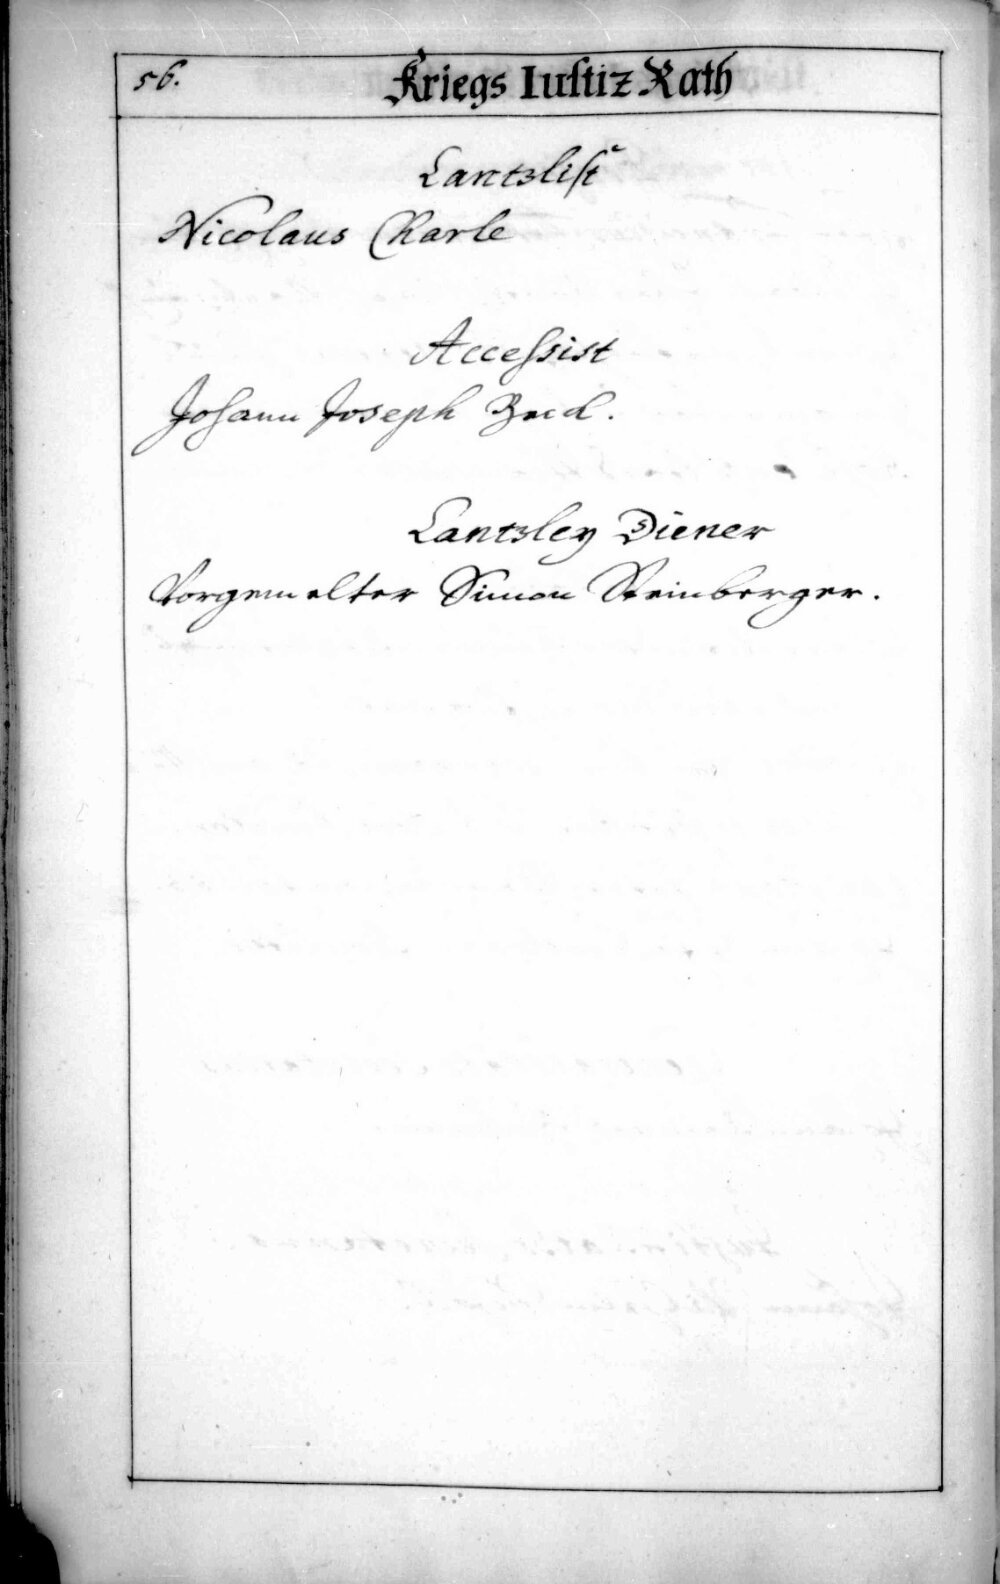 56.
Kriegs Iustiz Rath
Cantzlist
Nicolaus Charle
Accessist
Johann Joseph
Cantzley Diener
Vorgemelter Simon Steinberger.